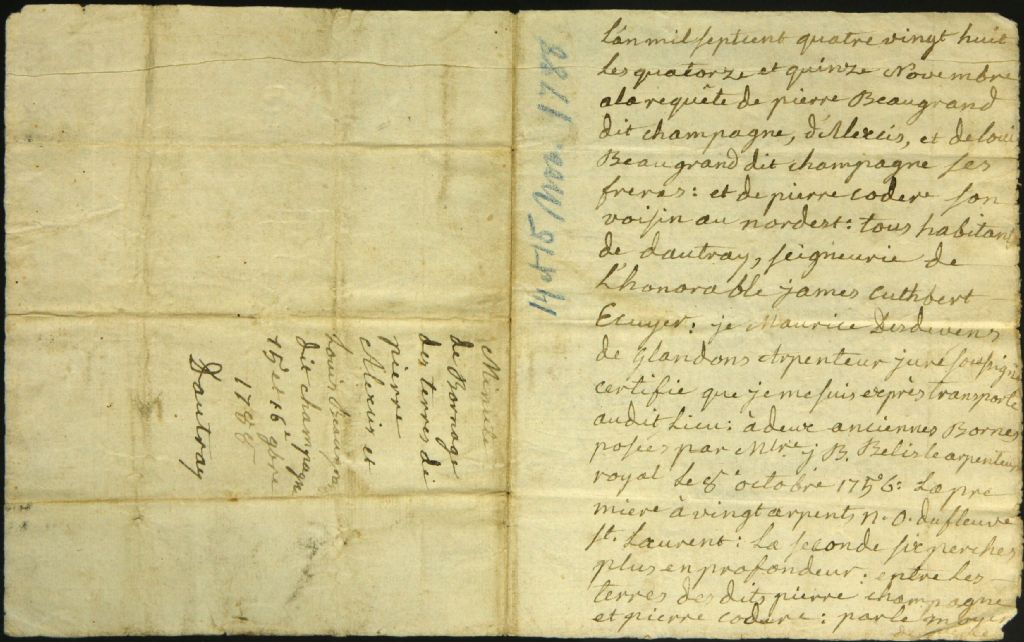 Minute
de Bornage
des terres de
pierre
Alexis et
Louis Beaugra
dit champagne
15 et 16 9bre
1788
Dautray
14-15 Nov. 1788
Lan mil septcent quatre vingt huit
Les quatorze et quinze Novembre
ala requête de pierre Beaugrand
dit champagne, d'Alexcis, et de loui
Beaugrand dit champagne ses
freres: et de pierre codere son
voisin au nordest: tous habitant
de dautray, seigneurie de
L'honorable james Cuthbert
Ecuyer: je Maurice Desdevens
de glandons Arpenteur juré soussigné
certifie que je me suis exprès transporté
audit Lieu: à deux anciennes Bornes
posées par Mtre j B. Belisle arpenteur
royal Le 8e octobre 1756: La pre
miere à vingt arpents n. O. du fleuve
st. Laurent: La seconde six perches
plus en profondeur: entre les
terres des dits pierre champagne
et pierre codere: par le moyen